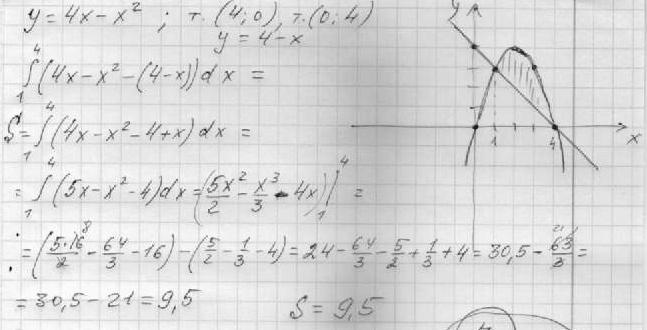 y = 4x - x² ; т. (4; 0), т. (0; 4)
y = 4 - x
∫₁⁴ (4x - x² - (4 - x)) dx =
S = ∫₁⁴ (4x - x² - 4 + x) dx =
= ∫₁⁴ (5x - x² - 4) dx = (5x²/2 - x³/3 - 4x)|₁⁴ =
= (5·16/2 - 64/3 - 16) - (5/2 - 1/3 - 4) = 24 - 64/3 - 5/2 + 1/3 + 4 = 30,5 - 63/3 =
= 30,5 - 21 = 9,5
S = 9,5
y
1
4
x